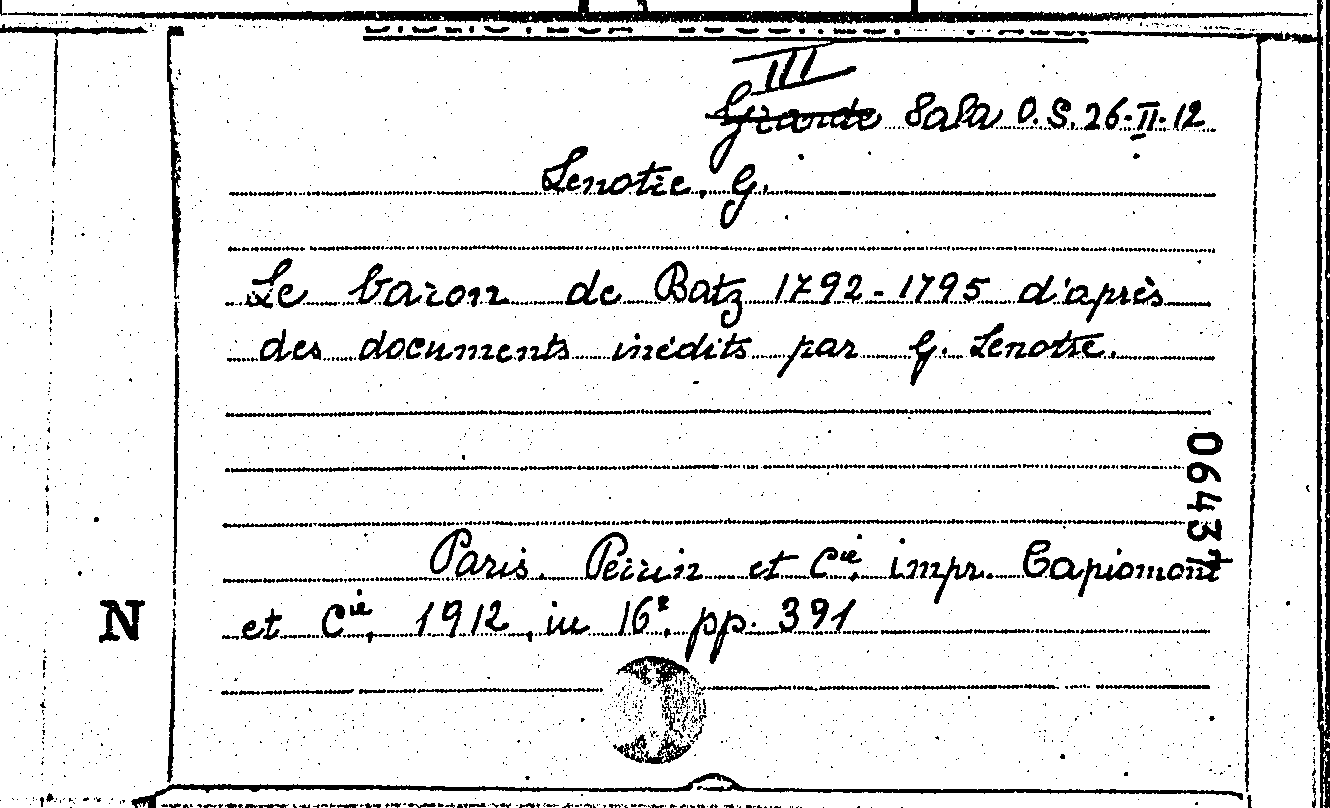 III
Grande Sala O.S. 26-II-12
Lenotre, G.
Le baron de Batz 1792-1795 d'après
des documents inédits par G. Lenotre.
06437
Paris. Perrin et Cie, impr. Capiomont
et Cie, 1912, in 16º, pp. 391
N